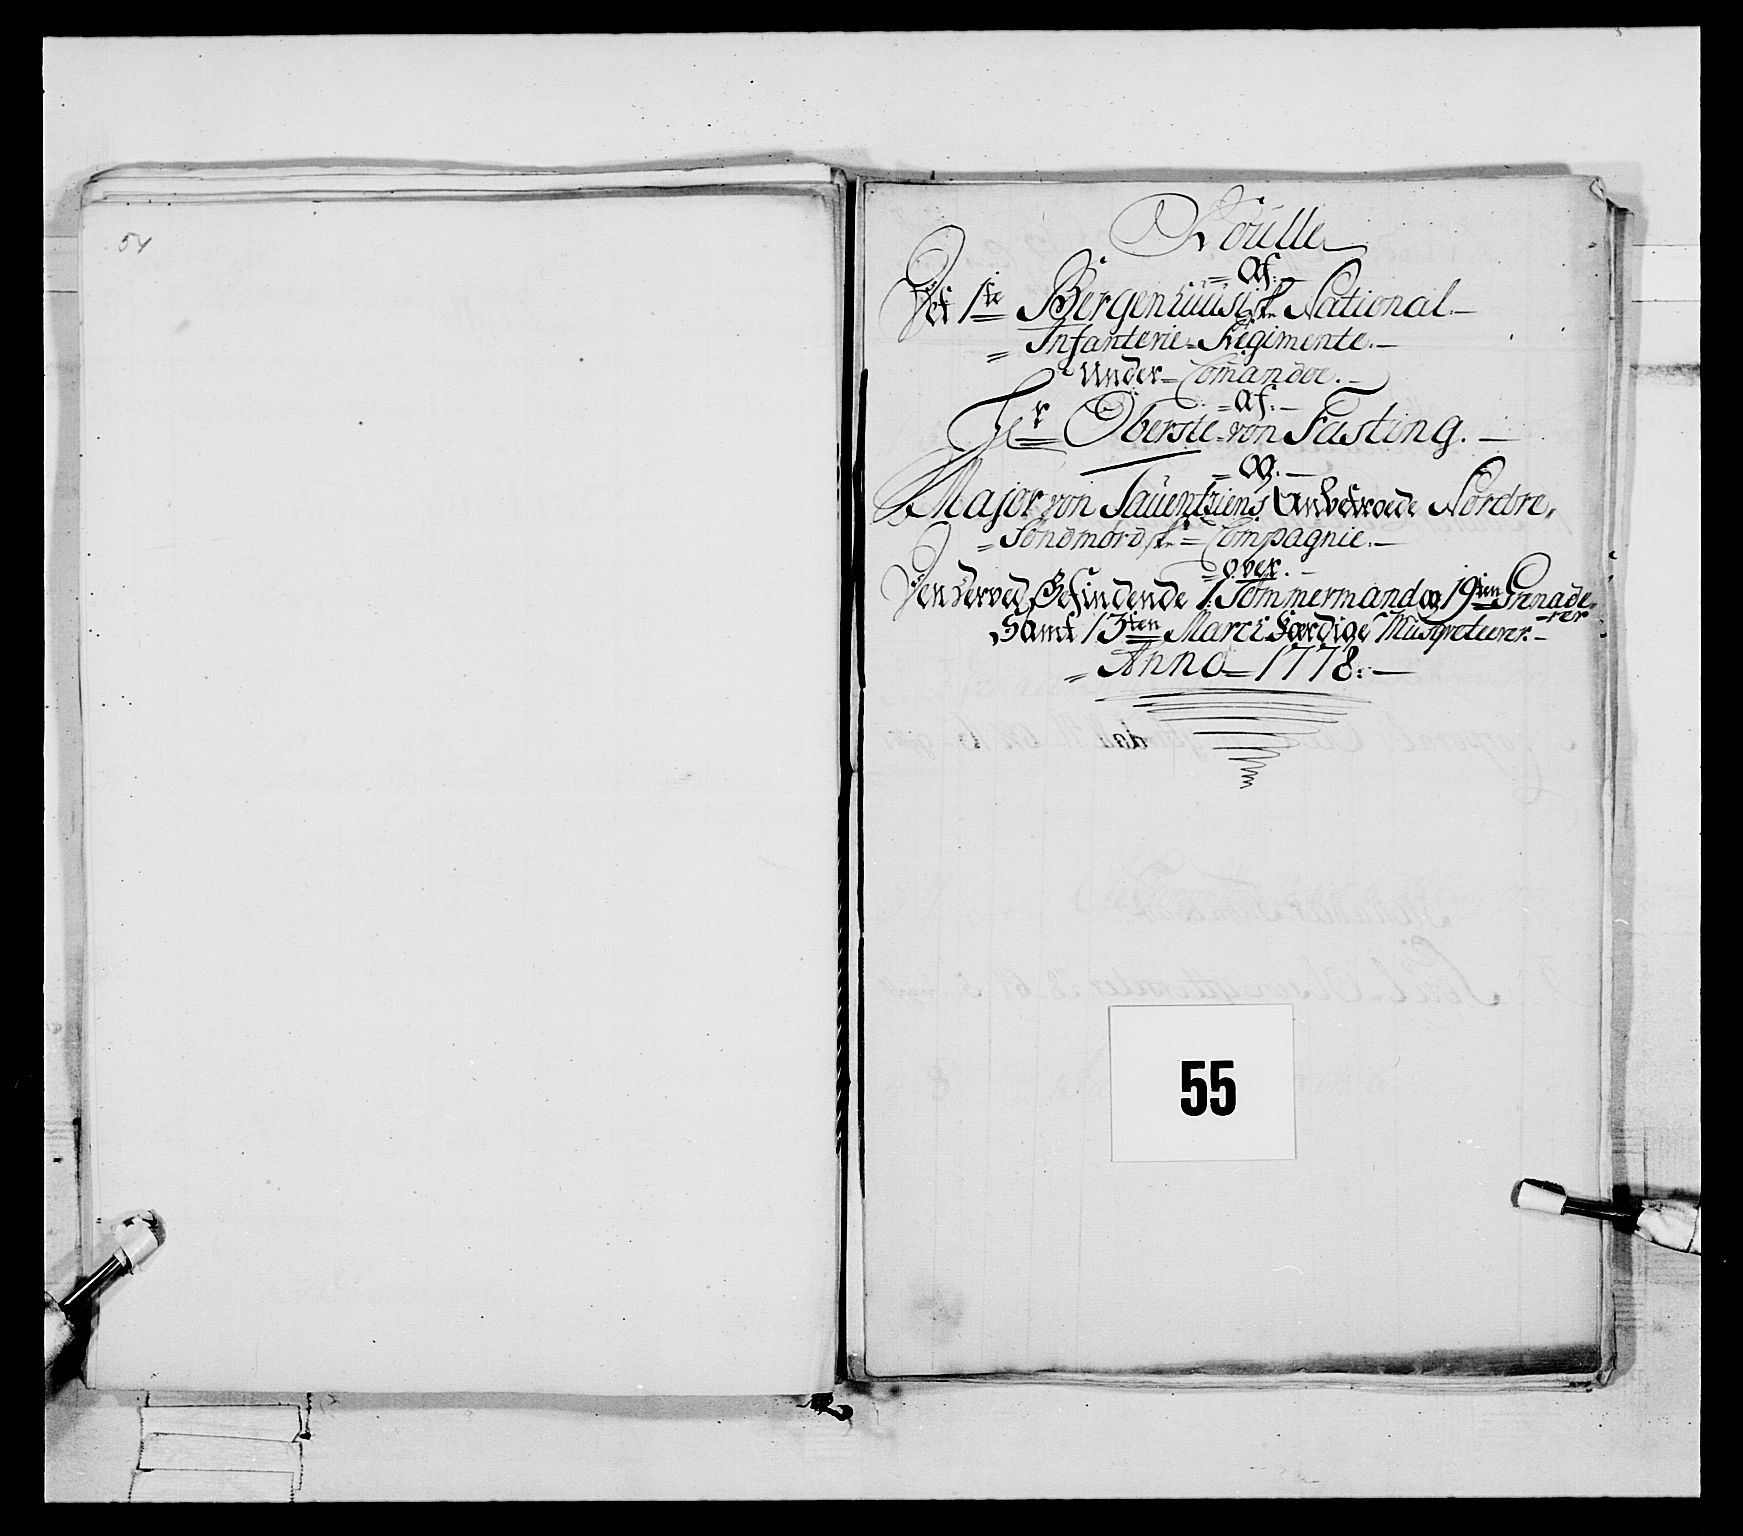 54
Roulle
= af: —
Det 1ste Bergenhuusiske National —
= Infanterie = Regimente. —
Under = Comandoe. —
= af: —
Hr Oberste von Fasting. —
= og. —
Major von Tauentziens Anbetroede Nordre,
= Søndmørdske = Compagnie. —
= over. —
Den derved Befindende 1. Tømmermand og 19ten Grenade,
= rer
Samt 13ten March færdige Musqveteerer. —
= Anno = 1778. —
55